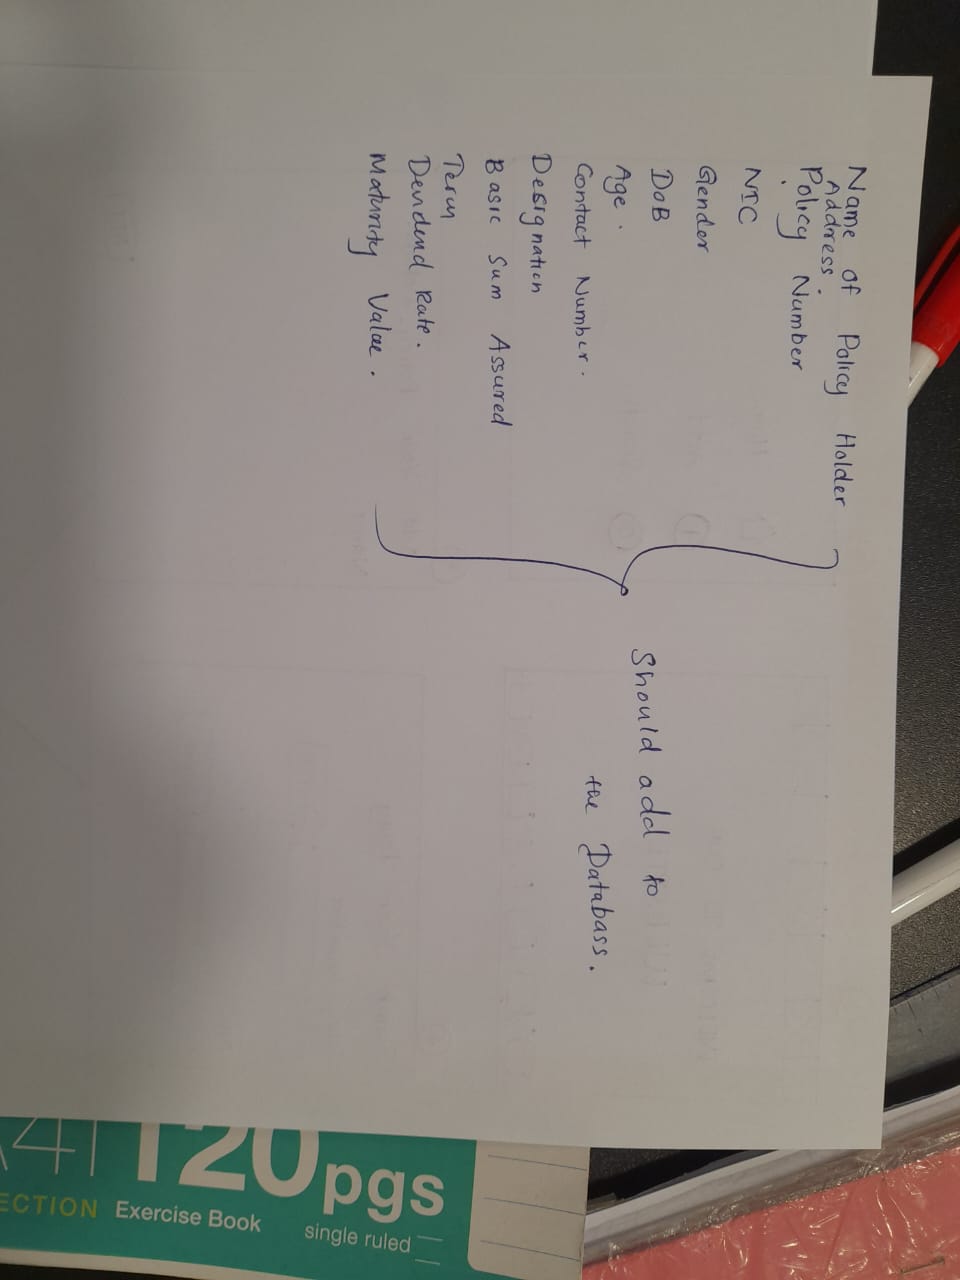 Name of Policy Holder
Address.
Policy Number
NIC
Gender
DoB
Age.
Contact Number.
Designation
Basic Sum Assured
Term
Devidend Rate.
Maturity Value.
Should add to
the Databass.
120pgs
ECTION Exercise Book
single ruled